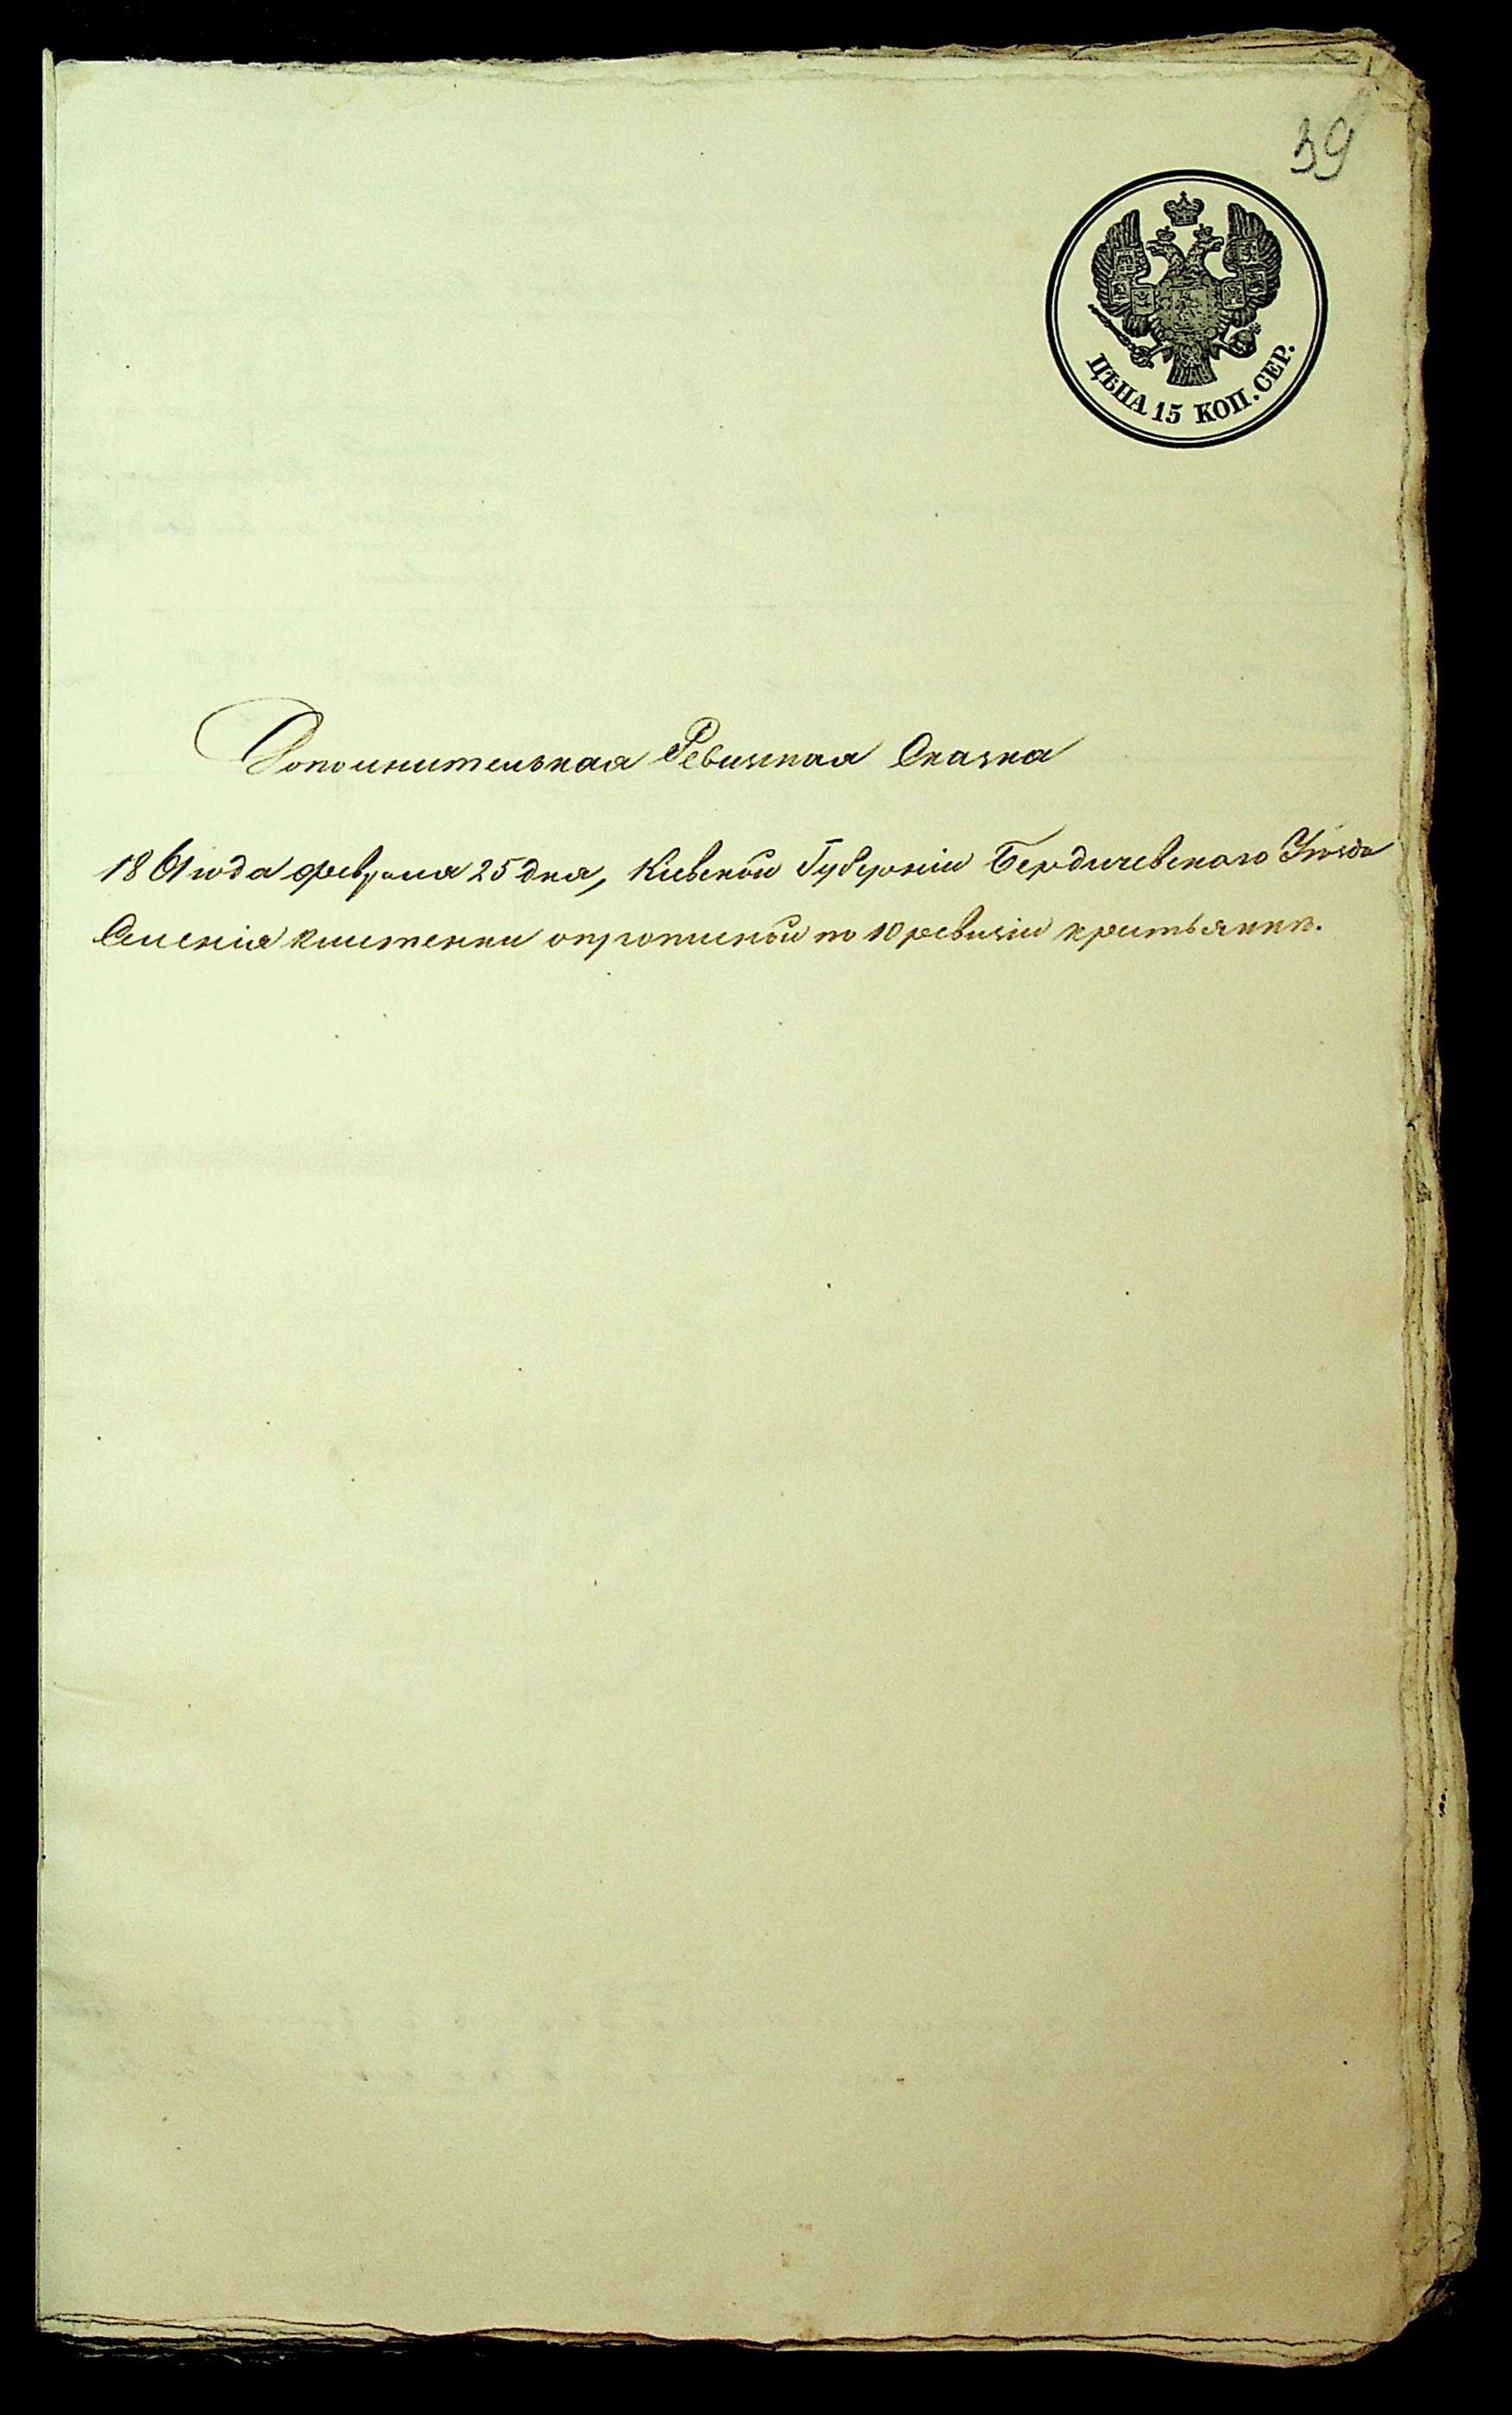 39
ЦѢНА 15 КОП. СЕР.
Дополнительная Ревизкая Сказка
1861 года февраля 25 дня, Киевской Губерніи Бердичевского Уѣзда
Селенія Клитенки о пропитской по 10 ревизіи крестьянкѣ.